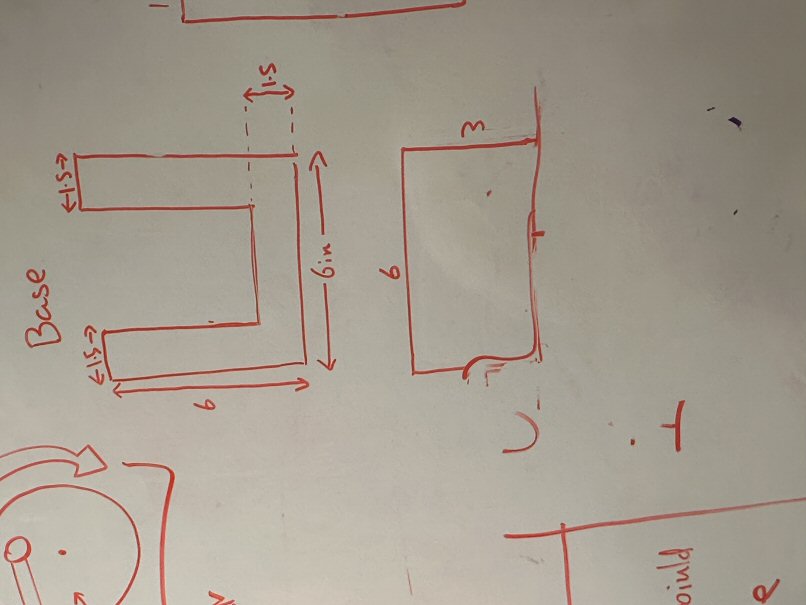 Base
1.5
1.5
6
1.5
6in
6
3
oiuld
e